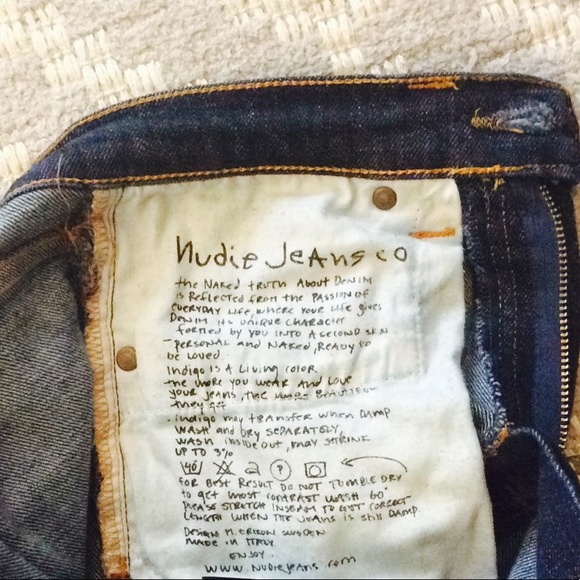 Nudie Jeans co
the NAKED truth About DENIM
is Reflected from the PASSION OF
EVERYDAY LIFE, WHERE YOUR LIFE gives
DENIM its UNIQUE CHARACTER
formed by you INTO A SECOND SKIN
- PERSONAL AND NAKED, READY to
be LOVED.
Indigo IS A LIVING COLOR
the MORE YOU WEAR AND LOVE
YOUR JEANS, the MORE BEAUTIFUL
they get
. Indigo may TRANSFER WHEN DAMP
WASH and DRY SEPARATELY,
WASH inside out, MAY SHRINK
UP TO 3%
40° ?
FOR BEST RESULT DO NOT TUMBLE DRY
to get most CONTRAST WASH 60°
PLEASE STRETCH INSEAM TO GET CORRECT
LENGTH WHEN THE JEANS is still DAMP.
DESIGN M. ERIXON SWEDEN
MADE IN ITALY
ENJOY.
WWW.NUDIEJEANS.com